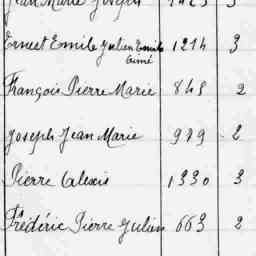 Jean Marie Joseph 1423 3
Ernest Emile Julien Emile 1214 3
Aimé
François Pierre Marie 845 2
Joseph Jean Marie 979 2
Pierre Alexis 1330 3
Frédéric Pierre Julien 663 2